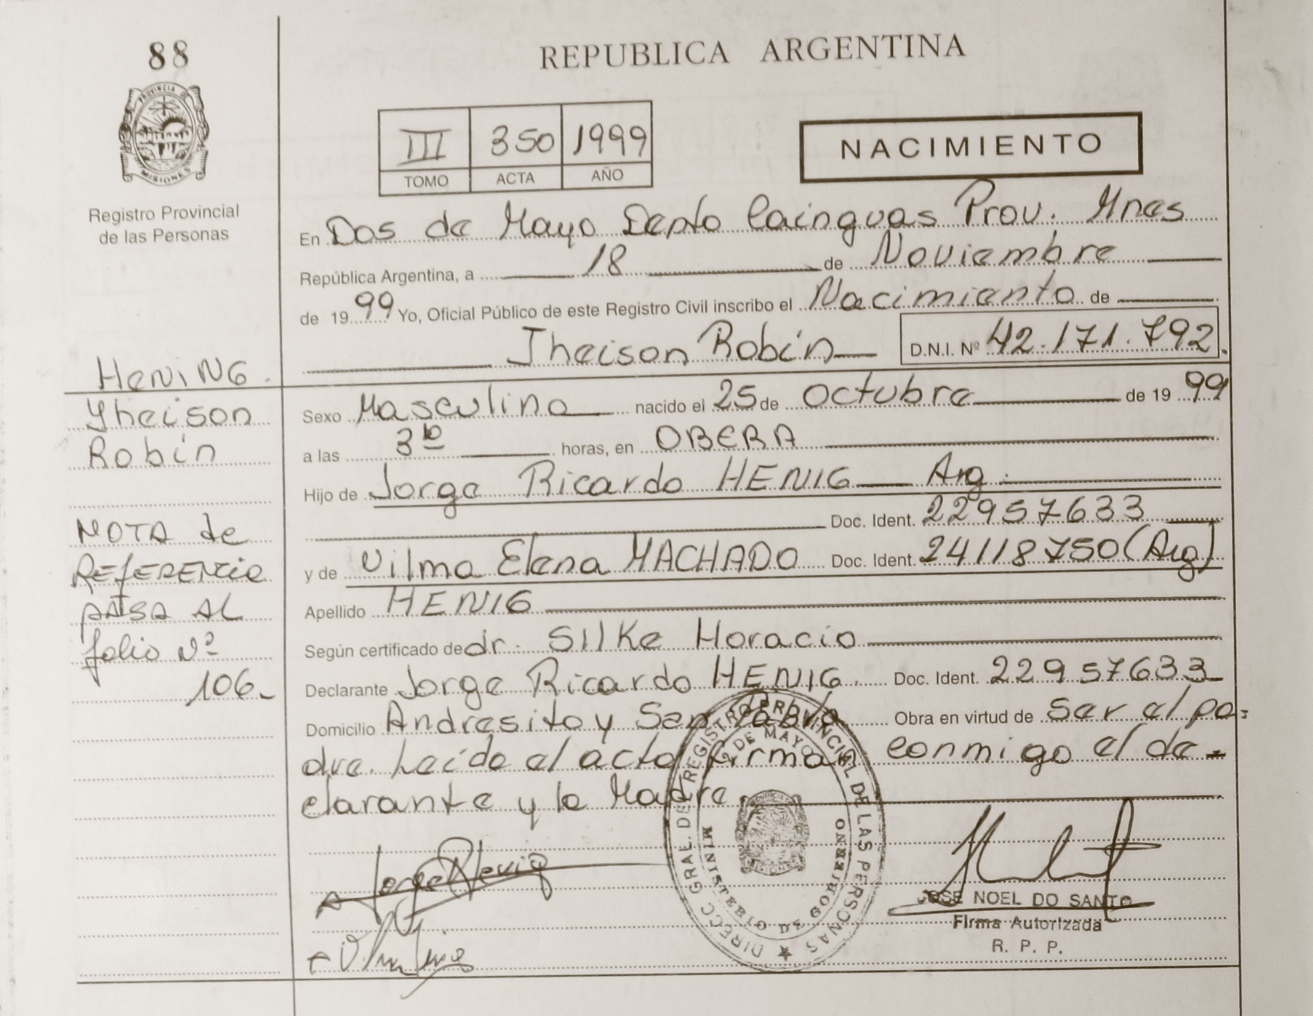 88
REPUBLICA ARGENTINA
PROVINCIA DE
MISIONES
Registro Provincial
de las Personas
III 350 1999
TOMO ACTA AÑO
NACIMIENTO
En Dos de Mayo Depto Cainguas Prov. Mnes
República Argentina, a 18 de Noviembre
de 1999 Yo, Oficial Público de este Registro Civil inscribo el Nacimiento de
Jheison Robín D.N.I. Nº 42.171.792
HENING.
Jheison
Robín
NOTA de
REFERENCIA
PASA AL
folio Nº
106
Sexo Masculino nacido el 25 de Octubre de 1999
a las 3 10 horas, en OBERA
Hijo de Jorge Ricardo HENIG Arg.
Doc. Ident. 22957633
y de Vilma Elena MACHADO Doc. Ident. 24118750 (Arg)
Apellido HENIG
Según certificado de dr. SILKE Horacio
Declarante Jorge Ricardo HENIG. Doc. Ident. 22957633
Domicilio Andresito y San Obra en virtud de Ser el pa-
dre. Leído el acta firma conmigo el de-
clarante y la Madre
DIRECC. GRAL. DE REGISTRO PROVINCIAL DE LAS PERSONAS
2 DE MAYO
MINISTERIO DE GOBIERNO
JOSE NOEL DO SANTO
Firma Autorizada
R. P. P.